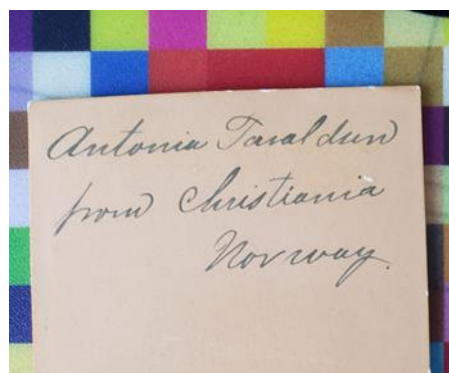 Antonia Taraldsen
from Christiania
Norway.